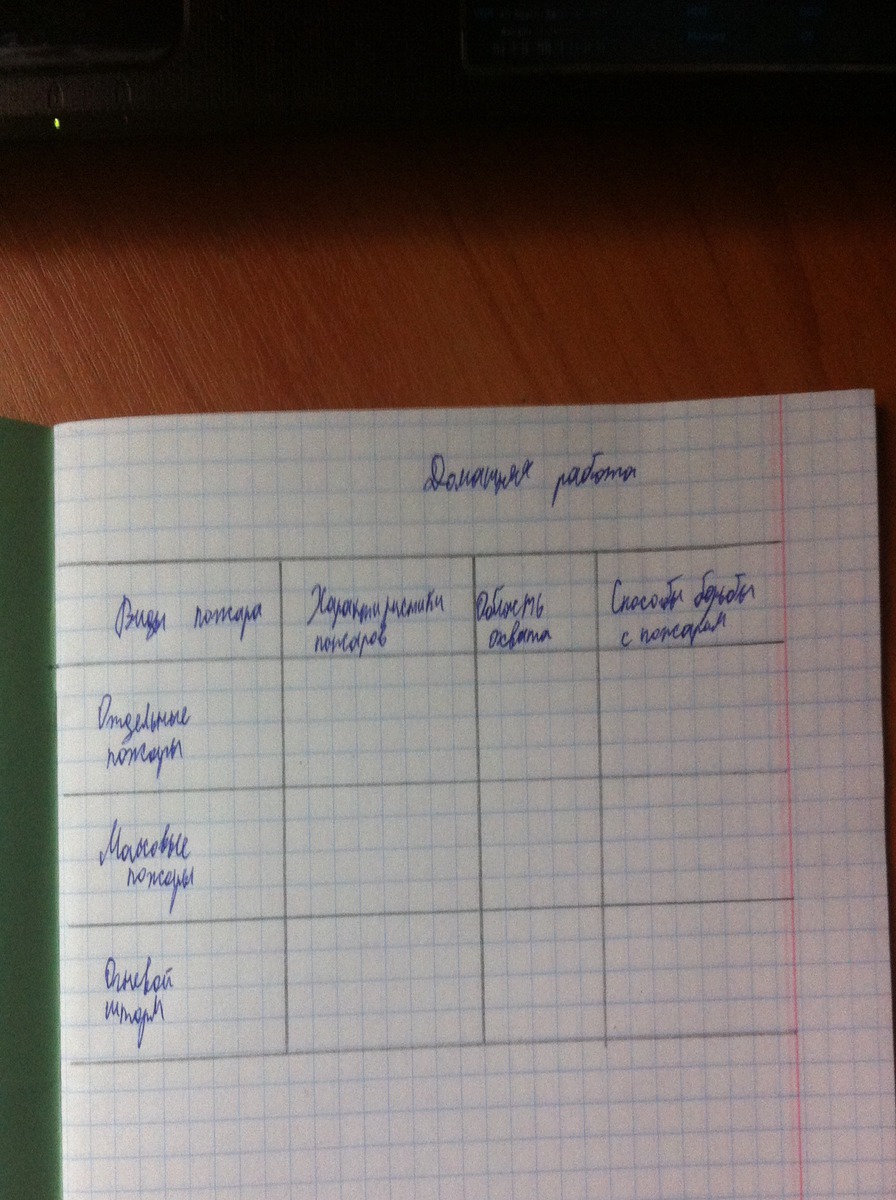 Домащяя работа
Виды пожара
Характиристики
пожаров
Область
охвата
Способы борьбы
с пожаром
Отдельные
пожары
Массовые
пожары
Огневой
шторм